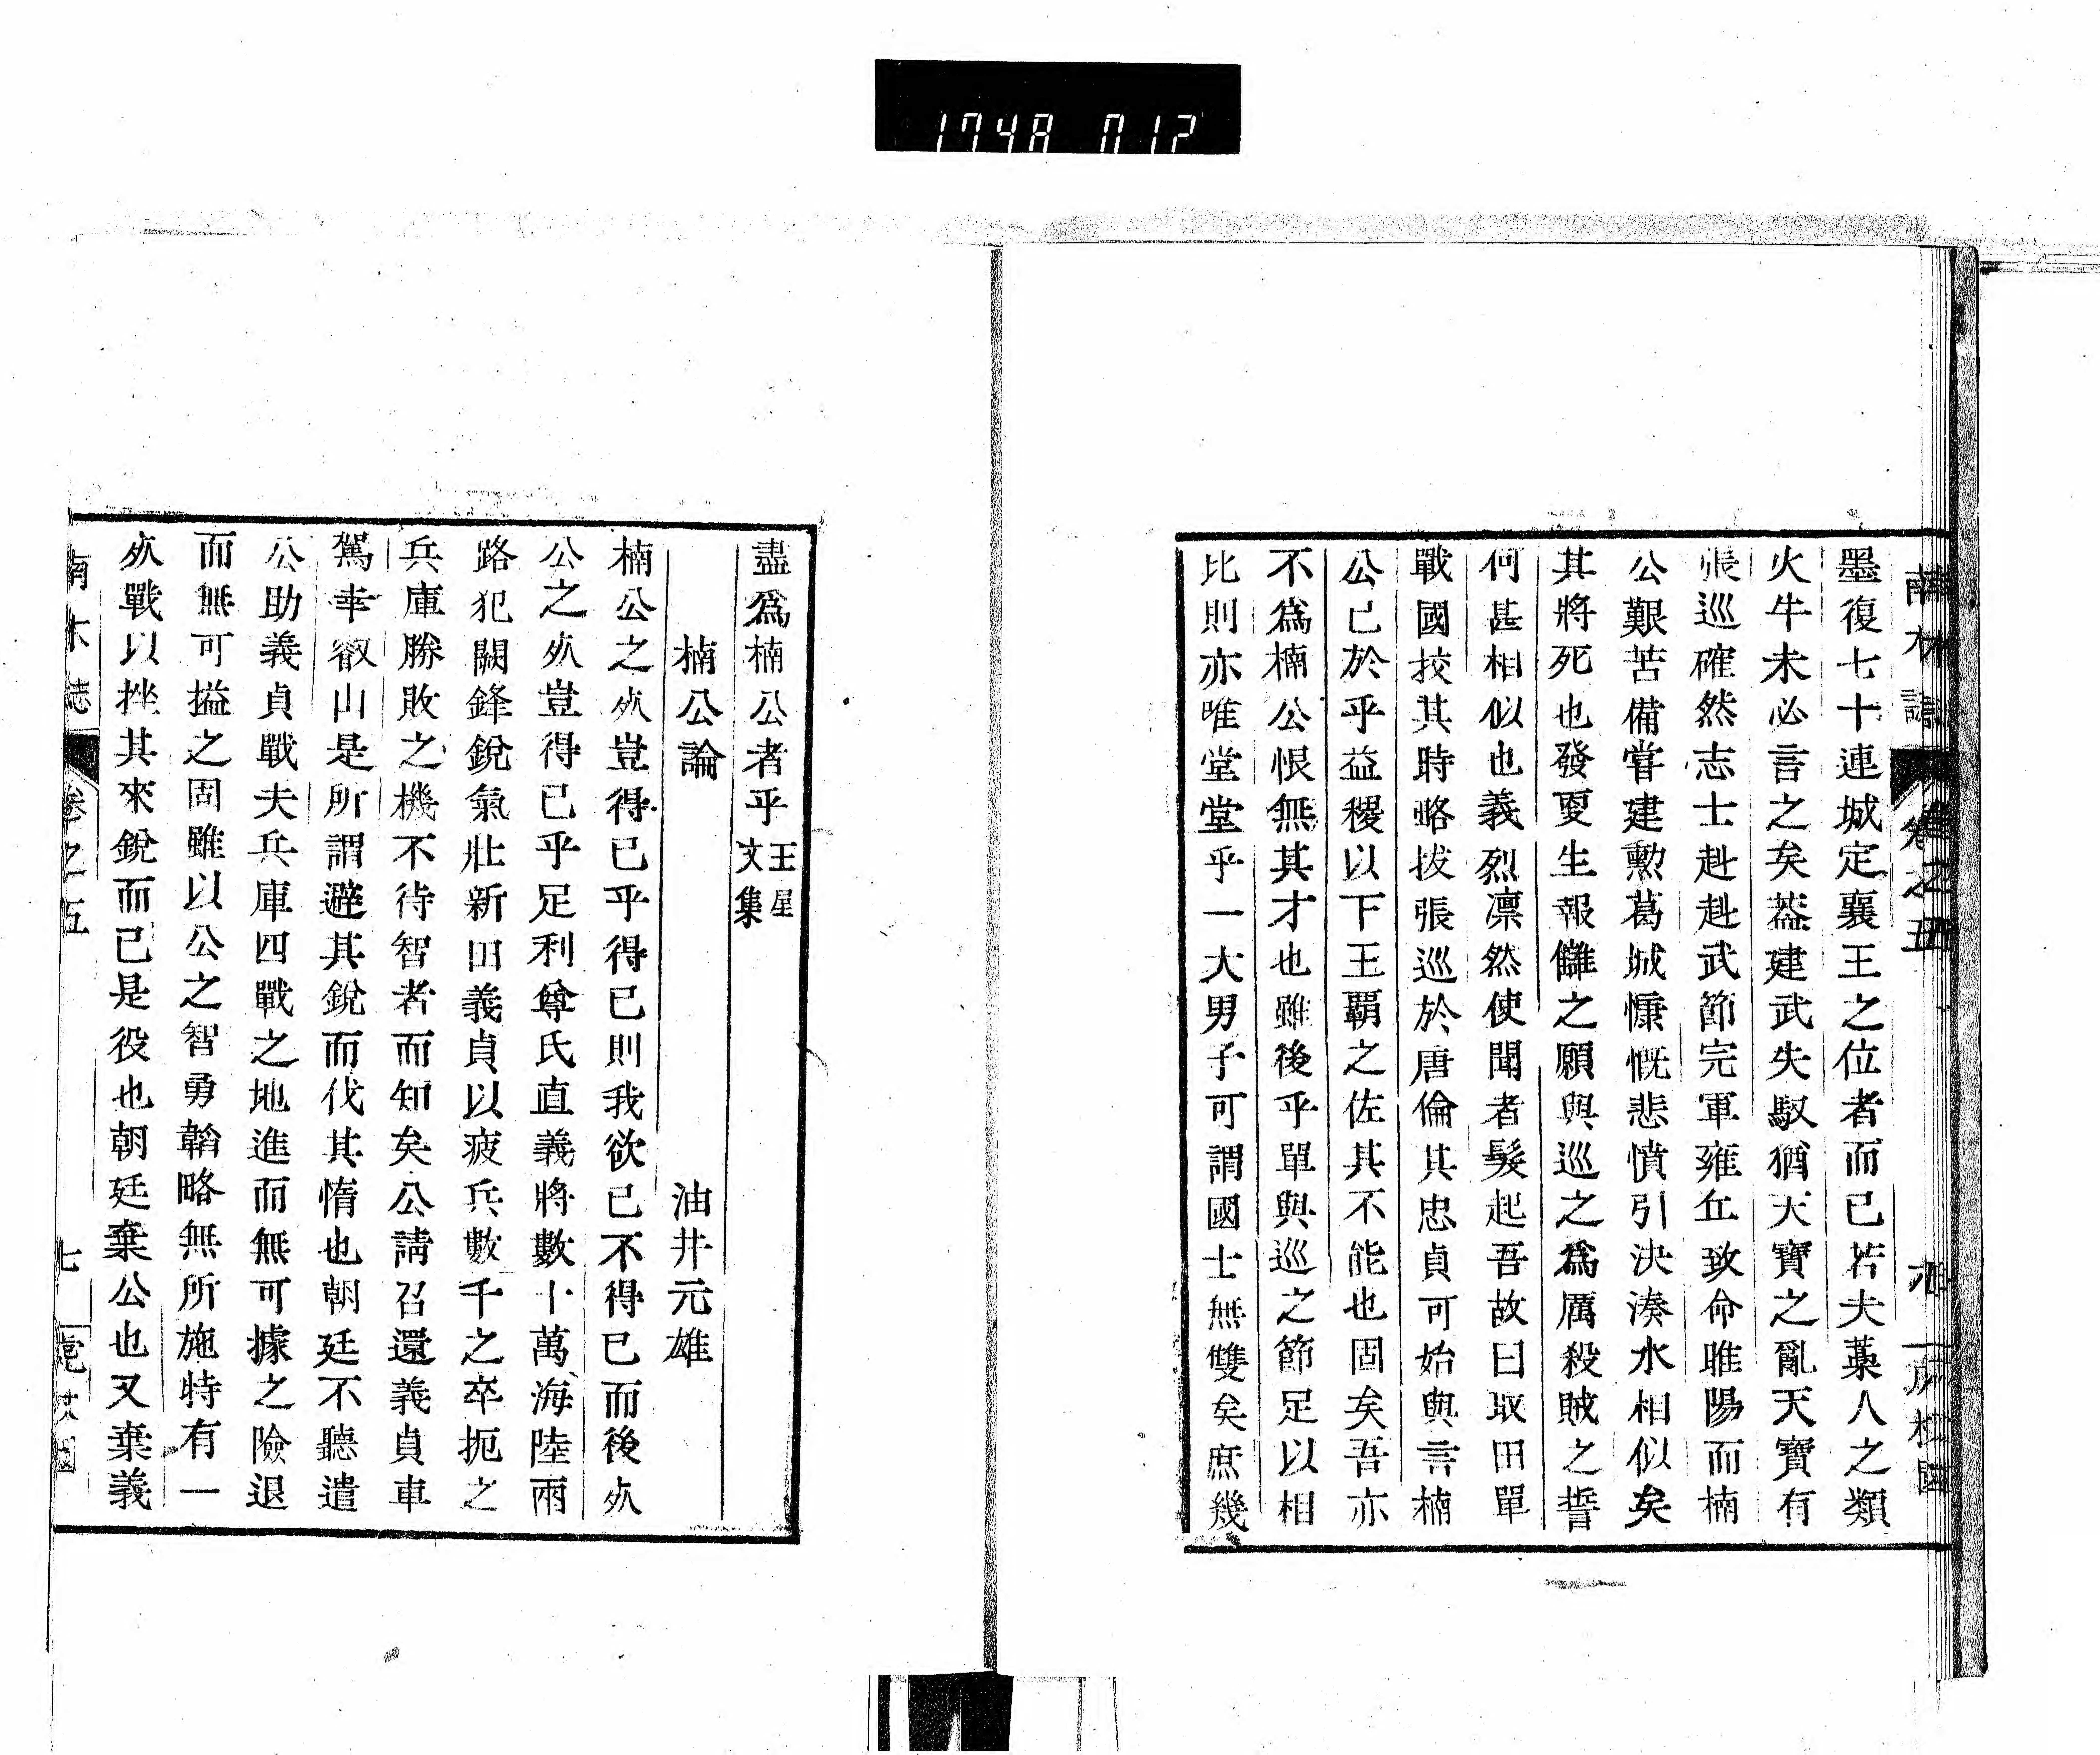 1748 012
墨復七十連城定襄王之位者而已若夫藁人之類
火牛未必言之矣葢建武失馭猶天寶之亂天寶有
張巡確然志士赳赳武節完軍雍丘致命睢陽而楠
公艱苦備嘗建勲葛城慷慨悲憤引決湊水相似矣
其將死也發更生報讎之願與巡之爲厲殺賊之誓
何甚相似也義烈凛然使聞者髮起吾故曰取田單
戰國挍其時略拔張巡於唐倫其忠貞可始與言楠
公已於乎益稷以下王覇之佐其不能也固矣吾亦
不爲楠公恨無其才也雖後乎單與巡之節足以相
比則亦唯堂堂乎一大男子可謂國士無雙矣庶幾
盡爲楠公者乎王星文集
楠公論　油井元雄
楠公之㱙豈得已乎得已則我欲已不得已而後㱙
公之㱙豈得已乎足利尊氏直義將數十萬海陸兩
路犯闕鋒銳氣壯新田義貞以疲兵數千之卒扼之
兵庫勝敗之機不待智者而知矣公請召還義貞車
駕幸叡山是所謂避其銳而伐其惰也朝廷不聽遣
公助義貞戰夫兵庫四戰之地進而無可據之險退
而無可搤之固雖以公之智勇韜略無所施特有一
㱙戰以挫其來銳而已是役也朝廷棄公也又棄義
南木誌　卷之五　七